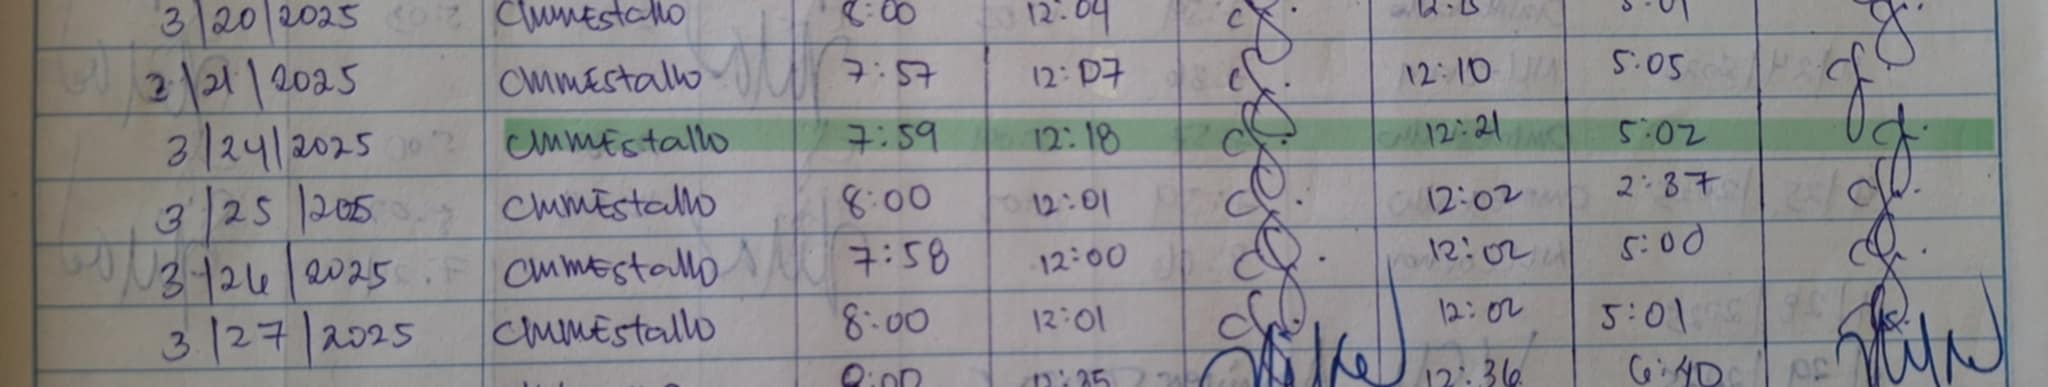 3/20/2025 CMMEstallo 8:00 12:04 12:15 5:01
3/21/2025 CMMEstallo 7:57 12:07 12:10 5:05
3/24/2025 CMMEstallo 7:59 12:18 12:21 5:02
3/25/2025 CMMEstallo 8:00 12:01 12:02 2:37
3/26/2025 CMMEstallo 7:58 12:00 12:02 5:00
3/27/2025 CMMEstallo 8:00 12:01 12:02 5:01
8:00 12:35 12:36 6:40